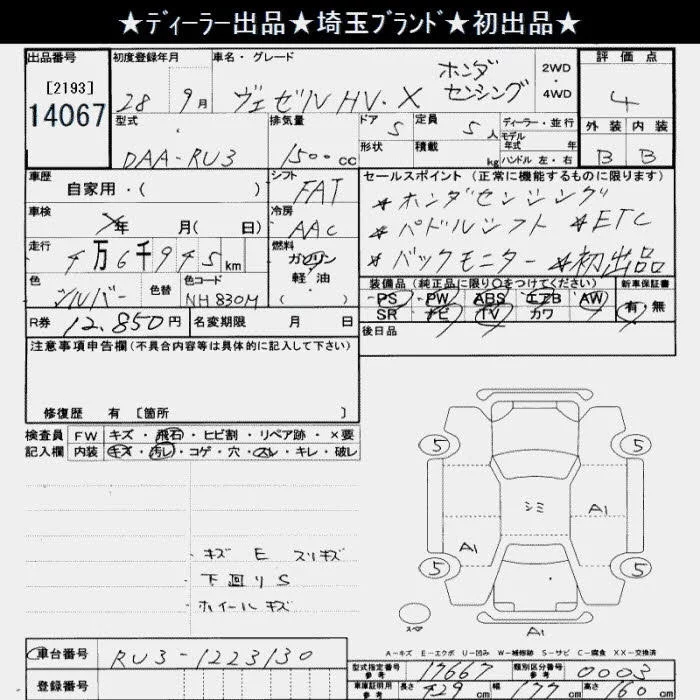 ★ディーラー出品★埼玉ブランド★初出品★
出品番号 初度登録年月 車名・グレード 評価点
[2193]
14067
28 9月 ヴェゼルHV・X ホンダセンシング 2WD・4WD 4
型式 排気量 ドア 定員 ディーラー・並行 外装 内装
DAA-RU3 1500cc 5 5人 モデル年式 年 B B
形状 積載 kg ハンドル 左・右
車歴 シフト セールスポイント(正常に機能するものに限ります)
自家用・( ) FAT ★ホンダセンシング
車検 年 月( 日) 冷房 AAC ★パドルシフト ★ETC
走行 万6千9 5km 燃料 ガソリン ★バックモニター ★初出品
軽油
( )
色 シルバー 色替 色コード NH830M
装備品(純正品に限り○をつけてください) 新車保証書
PS PW ABS エアB AW 有・無
SR ナビ TV カワ
R券 12,850円 名変期限 月 日
後日品
注意事項申告欄(不具合内容等は具体的に記入して下さい)
修復歴 有 [箇所 ]
検査員 FW キズ・飛石・ヒビ割・リペア跡・×要
記入欄 内装 キズ・汚レ・コゲ・穴・スレ・キレ・破レ
キズ E スリキズ
下回りS
ホイールキズ
5 5
シミ A1
A1
5 5
スペア
A1
A-キズ E-エクボ U-凹み W-補修跡 S-サビ C-腐食 XX-交換済
車台番号 RU3-1223130
型式指定番号 参考 17667 類別区分番号 参考 0003
登録番号
車庫証明用 参考 長さ 429cm 幅 177cm 高さ 160cm